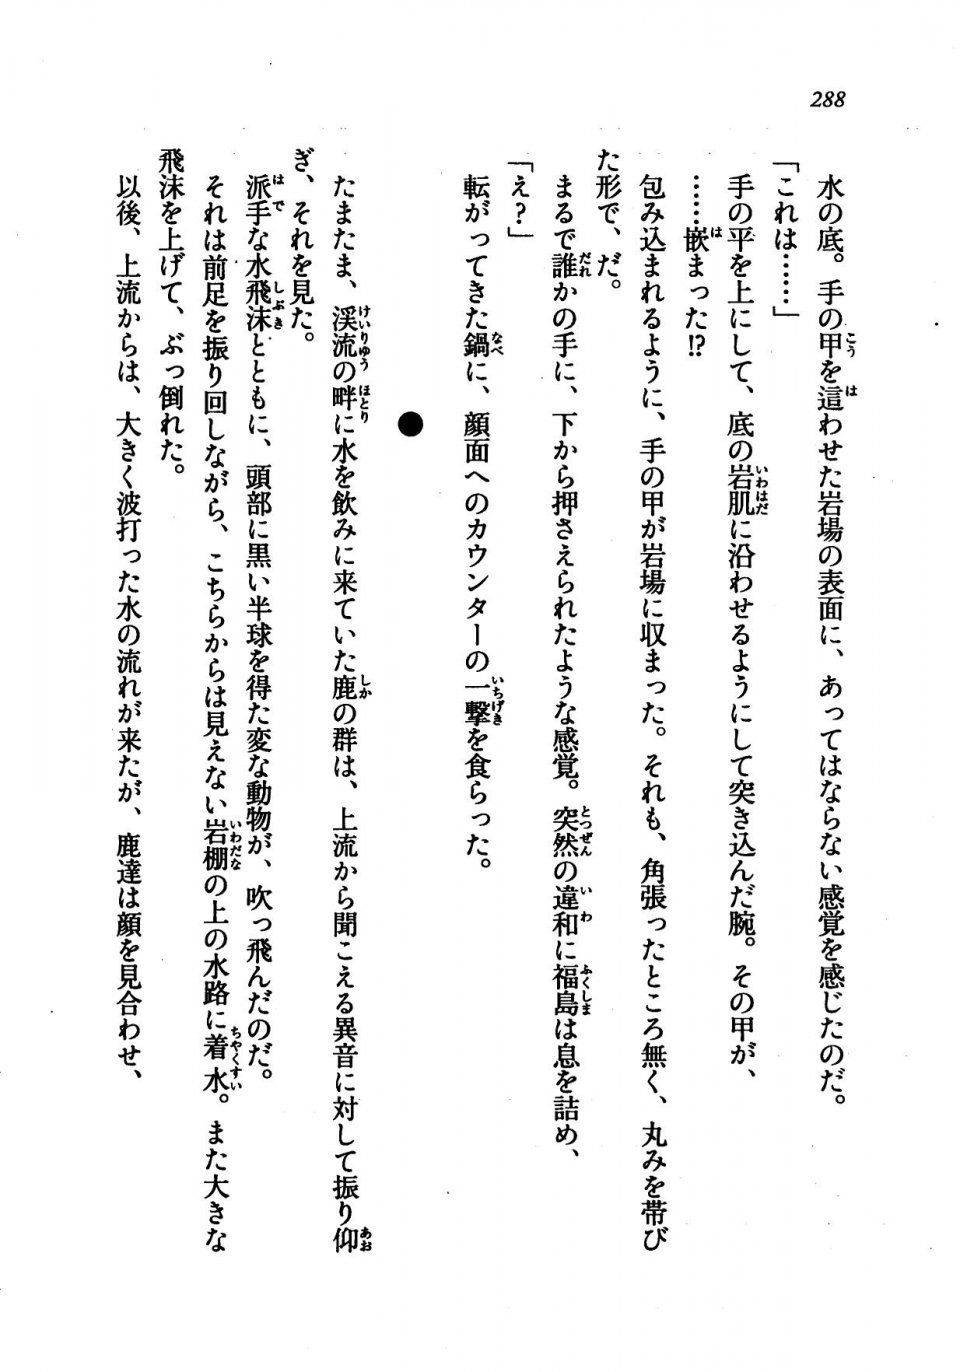 288
水の底。手の甲を這わせた岩場の表面に、あってはならない感覚を感じたのだ。
「これは……」
手の平を上にして、底の岩肌に沿わせるようにして突き込んだ腕。その甲が、
……嵌まった!?
包み込まれるように、手の甲が岩場に収まった。それも、角張ったところ無く、丸みを帯び
た形で、だ。
まるで誰かの手に、下から押さえられたような感覚。突然の違和に福島は息を詰め、
「え？」
転がってきた鍋に、顔面へのカウンターの一撃を食らった。
●
たまたま、渓流の畔に水を飲みに来ていた鹿の群は、上流から聞こえる異音に対して振り仰
ぎ、それを見た。
派手な水飛沫とともに、頭部に黒い半球を得た変な動物が、吹っ飛んだのだ。
それは前足を振り回しながら、こちらからは見えない岩棚の上の水路に着水。また大きな
飛沫を上げて、ぶっ倒れた。
以後、上流からは、大きく波打った水の流れが来たが、鹿達は顔を見合わせ、